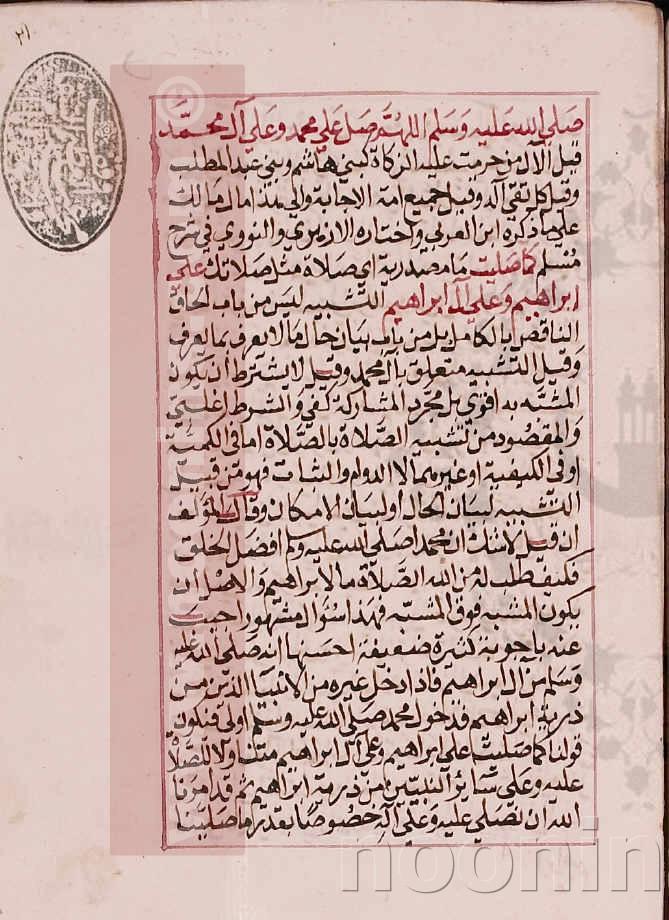 ٢١
صلى الله عليه وسلم اللهم صل على محمد وعلى آل محمد
قيل الآل من حرمت عليه الزكاة كبني هاشم وبني عبد المطلب
وقيل كل تقي آله وقيل جميع امة الاجابة والى هذا مال مالك
على ما ذكره ابن العربي واختاره الازهري والنووي في شرح
مسلم كما صليت ما مصدرية اي صلاة مثل صلاتك على
ابراهيم وعلى آل ابراهيم التشبيه ليس من باب الحاق
الناقص بالكامل بل من باب بيان حال ما لا يعرف بما يعرف
وقيل التشبيه متعلق بآل محمد وقيل لا يشترط ان يكون
المشبه به اقوى بل مجرد المشاركة كفى والشرط اغلبي
والمقصود من تشبيه الصلاة بالصلاة اما في الكمية
او في الكيفية او غيرهما الا الدوام والثبات فهو من قبيل
التشبيه لبيان الحال او لبيان الامكان وقال المؤلف
ان قيل لا شك ان محمدا صلى الله عليه وسلم افضل الخلق
فكيف طلب له من الله الصلاة ما لابراهيم والاصل ان
يكون المشبه فوق المشبه فهذا سؤال مشهور اجيب
عنه باجوبة كثيرة ضعيفة احسنها انه صلى الله عليه
وسلم من آل ابراهيم فاذا دخل غيره من الانبيا الذين من
ذرية ابراهيم فدخول محمد صلى الله عليه وسلم اولى فيكون
قولنا كما صليت على ابراهيم وعلى آل ابراهيم متناولا للصلاة
عليه وعلى سائر النبيين من ذرية ابراهيم ثم قد امرنا
الله ان نصلي عليه وعلى آله خصوصا بقدر ما صلينا
noonin